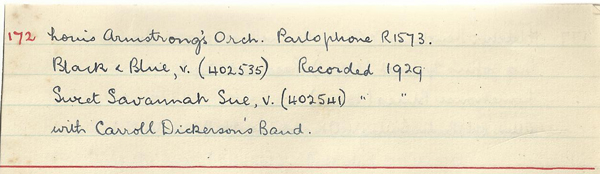 172 Louis Armstrong's Orch. Parlophone R1573.
Black & Blue, v. (402535) Recorded 1929
Sweet Savannah Sue, v. (402541) " "
with Carroll Dickerson's Band.